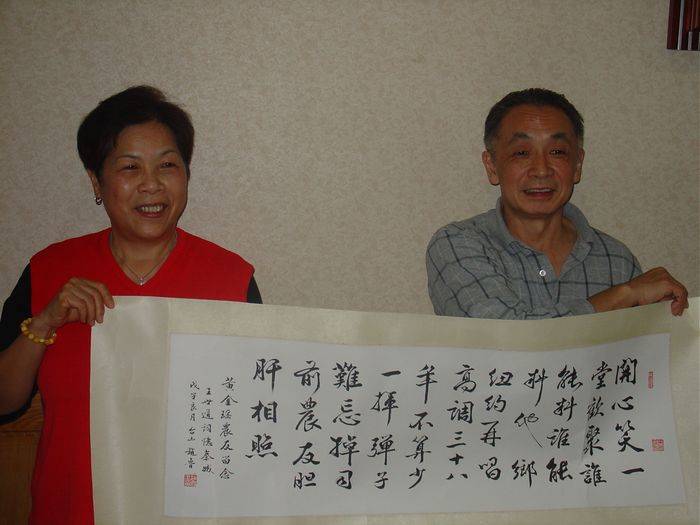 開心笑一
堂歡聚誰
能料誰能
料他鄉
紐約再唱
高調三十八
年不算少
一揮彈子
難忘掉司
前農友胆
肝相照
黃金瑶農友留念
王世道詞憶秦娥
戊子良月台山